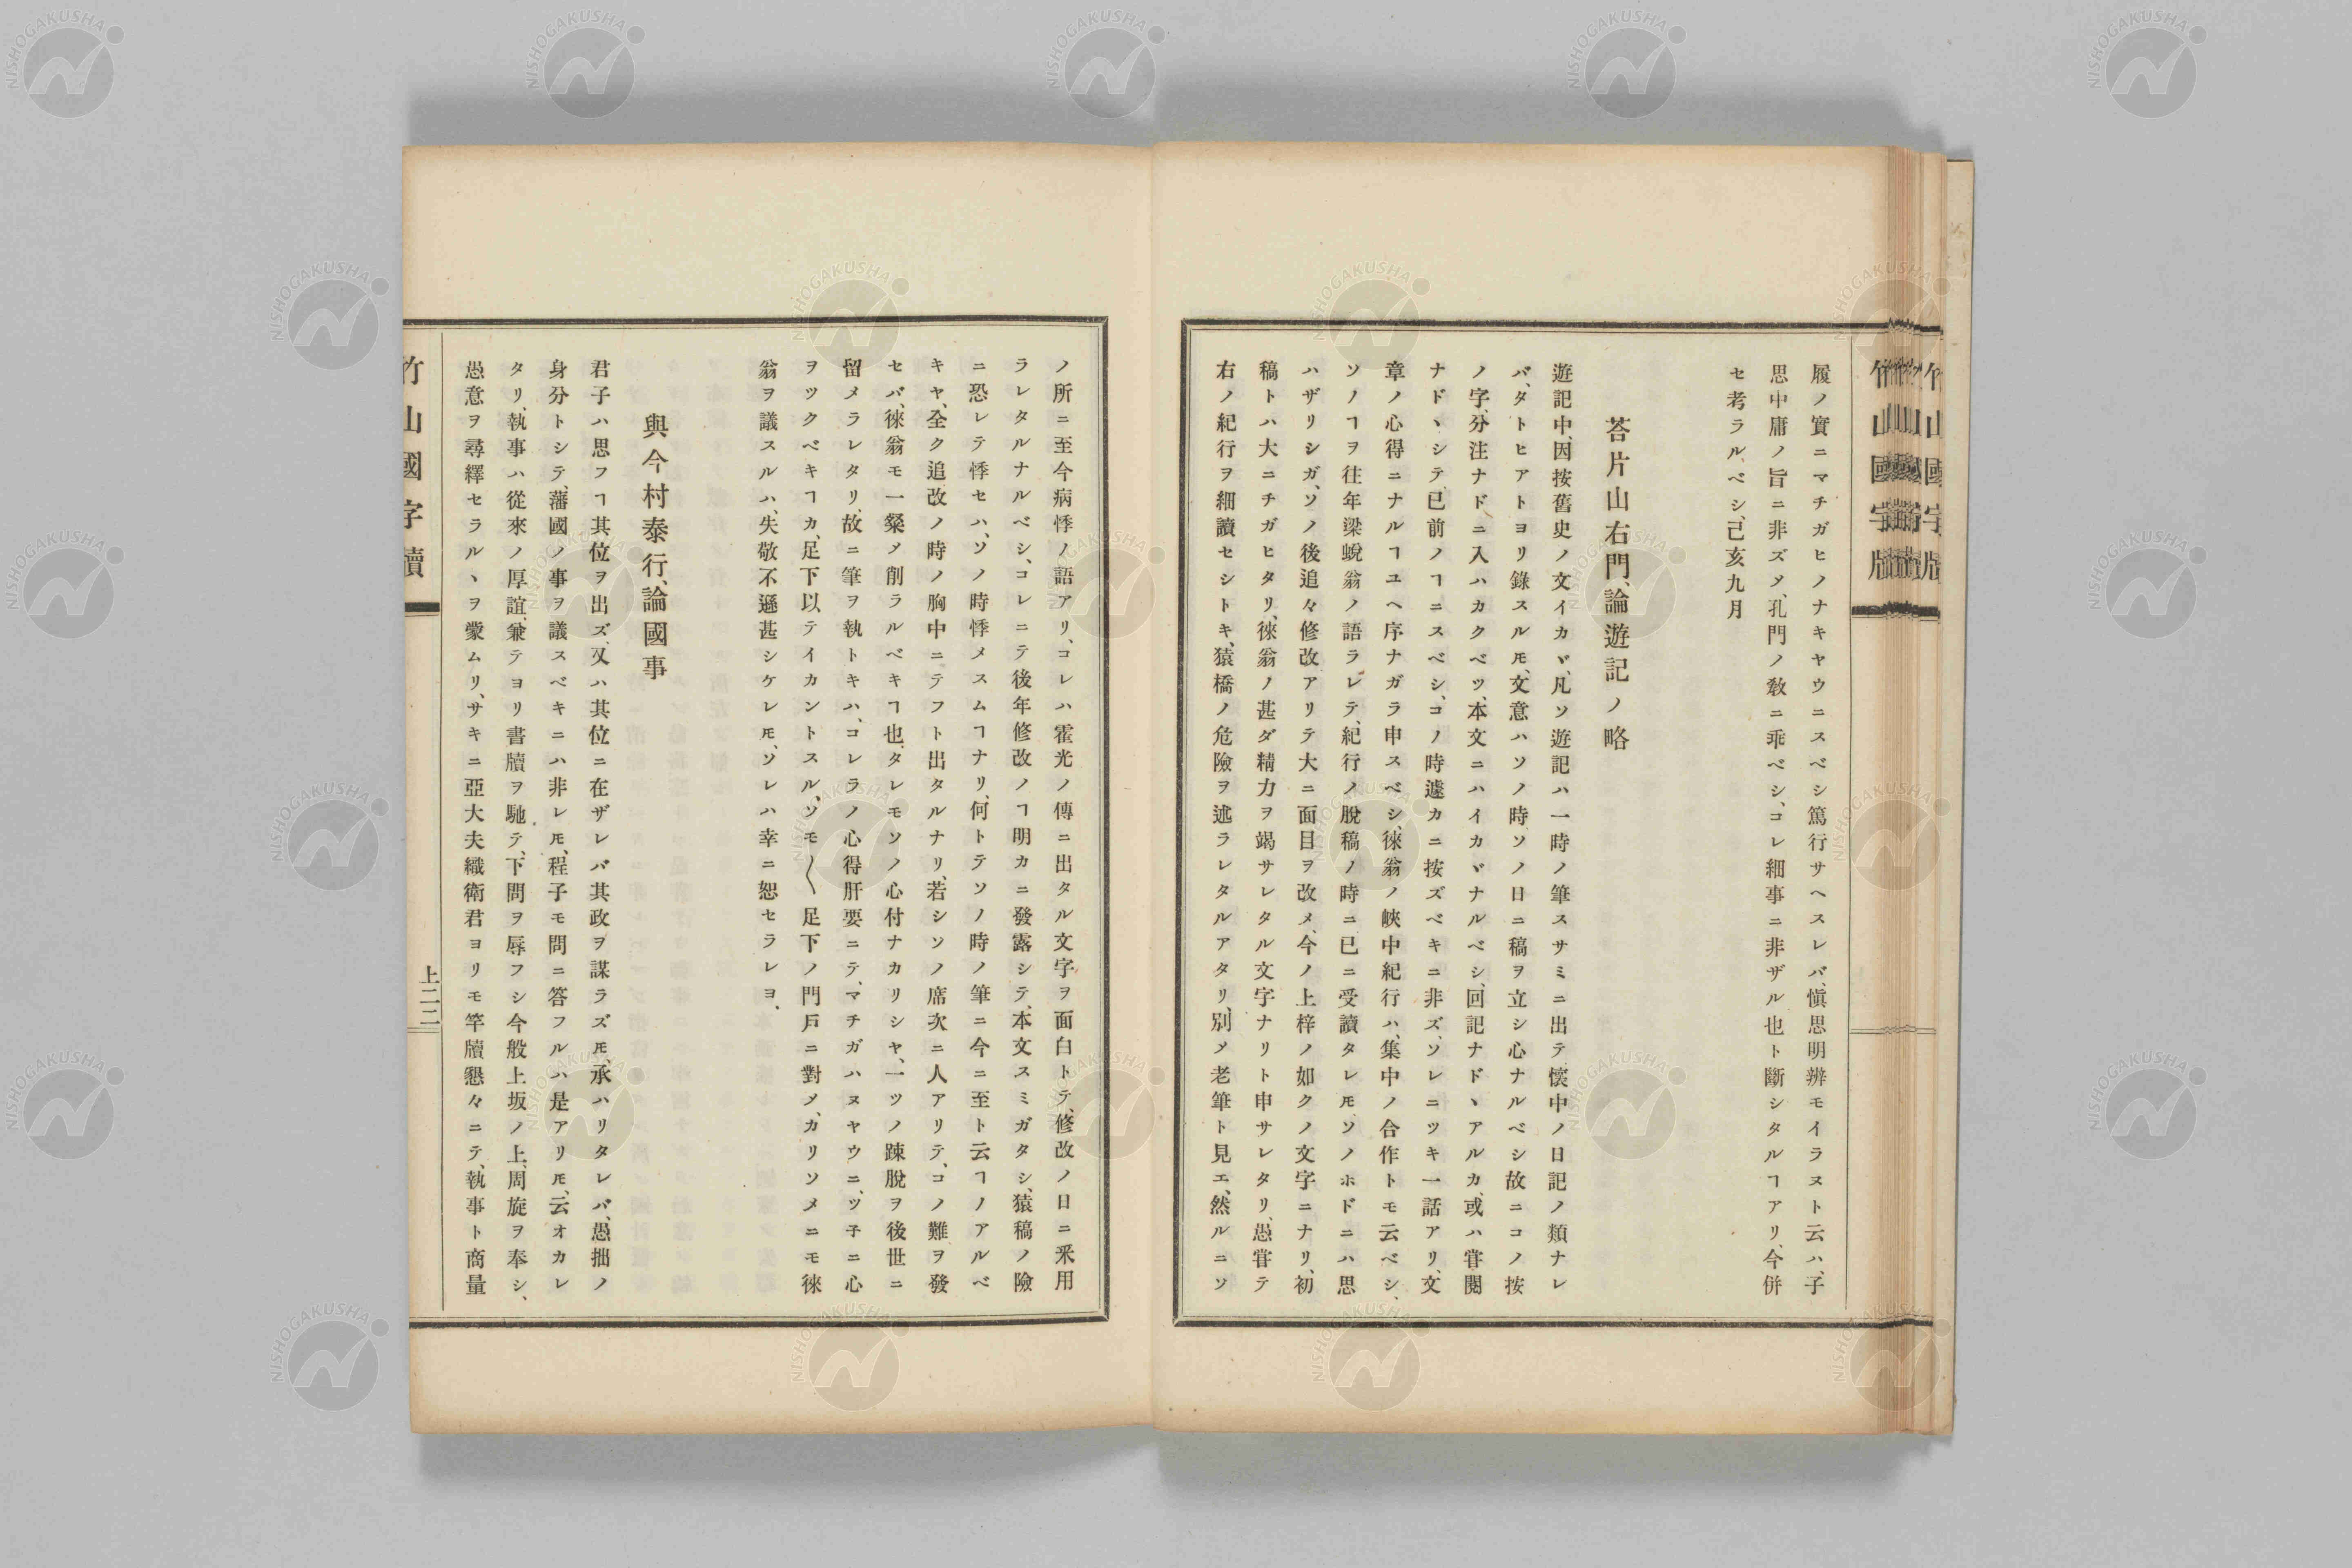 履ノ實ニマチガヒノナキヤウニスベシ篤行サヘスレバ、愼思明辨モイラヌト云ハ、子
思中庸ノ旨ニ非ズ〆、孔門ノ敎ニ乖ベシ、コレ細事ニ非ザル也ト斷シタルヿアリ、今併
セ考ラルベシ、己亥九月
荅片山右門、論遊記ノ略
遊記中、因按舊史ノ文イカヾ、凡ソ遊記ハ一時ノ筆スサミニ出テ、懷中ノ日記ノ類ナレ
バ、タトヒアトヨリ錄スルモ、文意ハソノ時、ソノ日ニ稿ヲ立シ心ナルベシ故ニコノ按
ノ字、分注ナドニ入ハカクベツ、本文ニハイカヾナルベシ、回記ナドヽアルカ、或ハ甞閱
ナドヽシテ、已前ノヿニスベシ、コノ時遽カニ按ズベキニ非ズ、ソレニツキ一話アリ、文
章ノ心得ニナルヿユヘ序ナガラ申スベシ、徠翁ノ峽中紀行ハ、集中ノ合作トモ云ベシ、
ソノヿヲ往年梁蛻翁ノ語ラレテ、紀行ノ脫稿ノ時ニ已ニ受讀タレ𪜈、ソノホドニハ思
ハザリシガ、ソノ後追々修改アリテ大ニ面目ヲ改メ、今ノ上梓ノ如クノ文字ニナリ、初
稿トハ大ニチガヒタリ、徠翁ノ甚ダ精力ヲ竭サレタル文字ナリト申サレタリ、愚甞テ
右ノ紀行ヲ細讀セシトキ、猿橋ノ危險ヲ述ラレタルアタリ、別〆老筆ト見エ、然ルニソ
ノ所ニ至今病悸ノ語アリ、コレハ霍光ノ傳ニ出タル文字ヲ面白トテ、修改ノ日ニ釆用
ラレタルナルベシ、コレニテ後年修改ノヿ明カニ發露シテ、本文スミガタシ、猿稿ノ險
ニ恐レテ悸セハ、ソノ時悸メスムヿナリ、何トテソノ時ノ筆ニ今ニ至ト云ヿノアルベ
キヤ、全ク追改ノ時ノ胸中ニテフト出タルナリ、若シソノ席次ニ人アリテ、コノ難ヲ發
セバ、徠翁モ一粲〆削ラルベキヿ也、タレモソノ心付ナカリシヤ、一ツノ踈脫ヲ後世ニ
留メラレタリ、故ニ筆ヲ執トキハ、コレラノ心得肝要ニテ、マチガハヌヤウニ、ツ子ニ心
ヲツクベキヿカ、足下以テイカントスル、ソモ〱足下ノ門戶ニ對〆、カリソメニモ徠
翁ヲ議スルハ、失敬不遜甚シケレ𪜈、ソレハ幸ニ恕セラレヨ、
與今村泰行、論國事
君子ハ思フヿ其位ヲ出ズ、又ハ其位ニ在ザレバ其政ヲ謀ラズ𪜈、承ハリタレバ、愚拙ノ
身分トシテ、藩國ノ事ヲ議スベキニハ非レ𪜈、程子モ問ニ答フルハ是アリ𪜈、云オカレ
タリ、執事ハ從來ノ厚誼、兼テヨリ書牘ヲ馳テ、下問ヲ辱フシ今般上坂ノ上、周旋ヲ奉シ、
愚意ヲ尋繹セラルヽヲ蒙ムリ、サキニ亞大夫織衛君ヨリモ竿牘懇々ニテ、執事ト商量
竹山國字牘
上二二